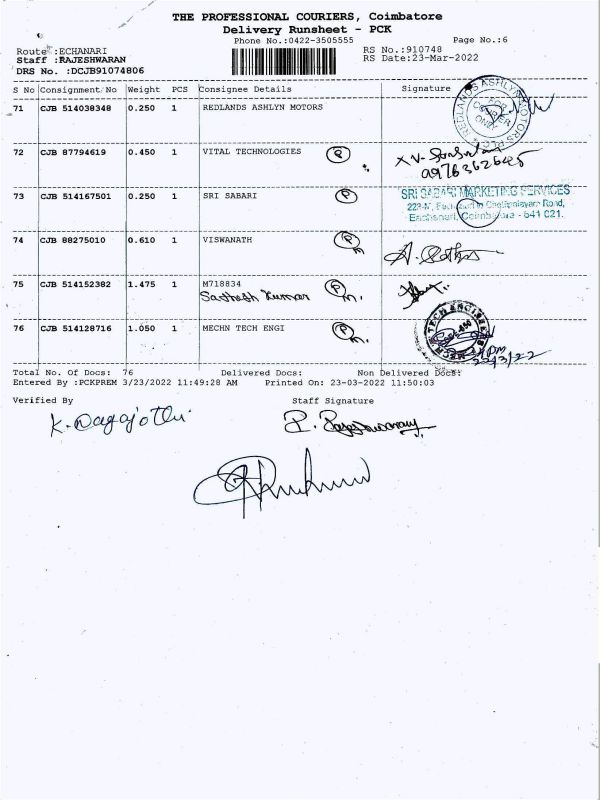 THE PROFESSIONAL COURIERS, Coimbatore
Delivery Runsheet - PCK
Phone No.:0422-3505555 Page No.:6
Route :ECHANARI RS No.:910748
Staff :RAJESHWARAN RS Date:23-Mar-2022
DRS No. :DCJB91074806
S No Consignment No Weight PCS Consignee Details Signature
71 CJB 514038348 0.250 1 REDLANDS ASHLYN MOTORS
REDLANDS ASHLYN MOTORS PLC
FOR COURIER ONLY
72 CJB 87794619 0.450 1 VITAL TECHNOLOGIES P
73 CJB 514167501 0.250 1 SRI SABARI P
SRI SABARI MARKETING SERVICES
Road,
Eachanari, Coimbatore - 641 021.
74 CJB 88275010 0.610 1 VISWANATH P
75 CJB 514152382 1.475 1 M718834 P
Santhosh Kumar
76 CJB 514128716 1.050 1 MECHN TECH ENGI P
Total No. Of Docs: 76 Delivered Docs: Non Delivered Docs:
Entered By :PCKPREM 3/23/2022 11:49:28 AM Printed On: 23-03-2022 11:50:03
Verified By Staff Signature